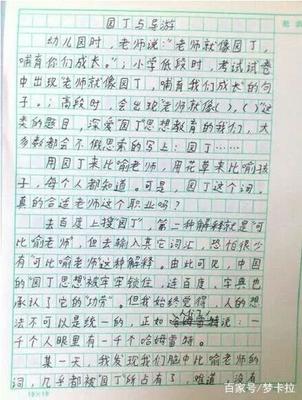 园丁与导游
幼儿园时，老师说："老师就像园丁，
哺育你们成长。"；小学低段时，考试试卷
中出现"老师就像园丁，哺育我们成长"的句
子。；高段时，会出现"老师就像( )，( )"这
类的题目，深爱"园丁"思想教育的我们，大
多数都会不假思索的写上：园丁……
用园丁来比喻老师，用花草来比喻孩
子，每个人都知道。可是，园丁这个词，
真的合适老师这个职业吗？
去百度上搜"园丁"，第二种解释就是"可
比喻老师"，但去输入其它词汇，恐怕很少
有"可比喻老师"这种解释。由此可见，中国
的"园丁"思想被牢牢锁住，连百度、字典也
承认了它的"功劳"。但我始终觉得，人的想
法不可以是统一的，正如 说：一
千个人眼里有一千个哈姆雷特。
某一天，我发现我们脑中比喻老师的
词，几乎都被"园丁"所占有了，难道，没有
18×19
百家号/梦卡拉